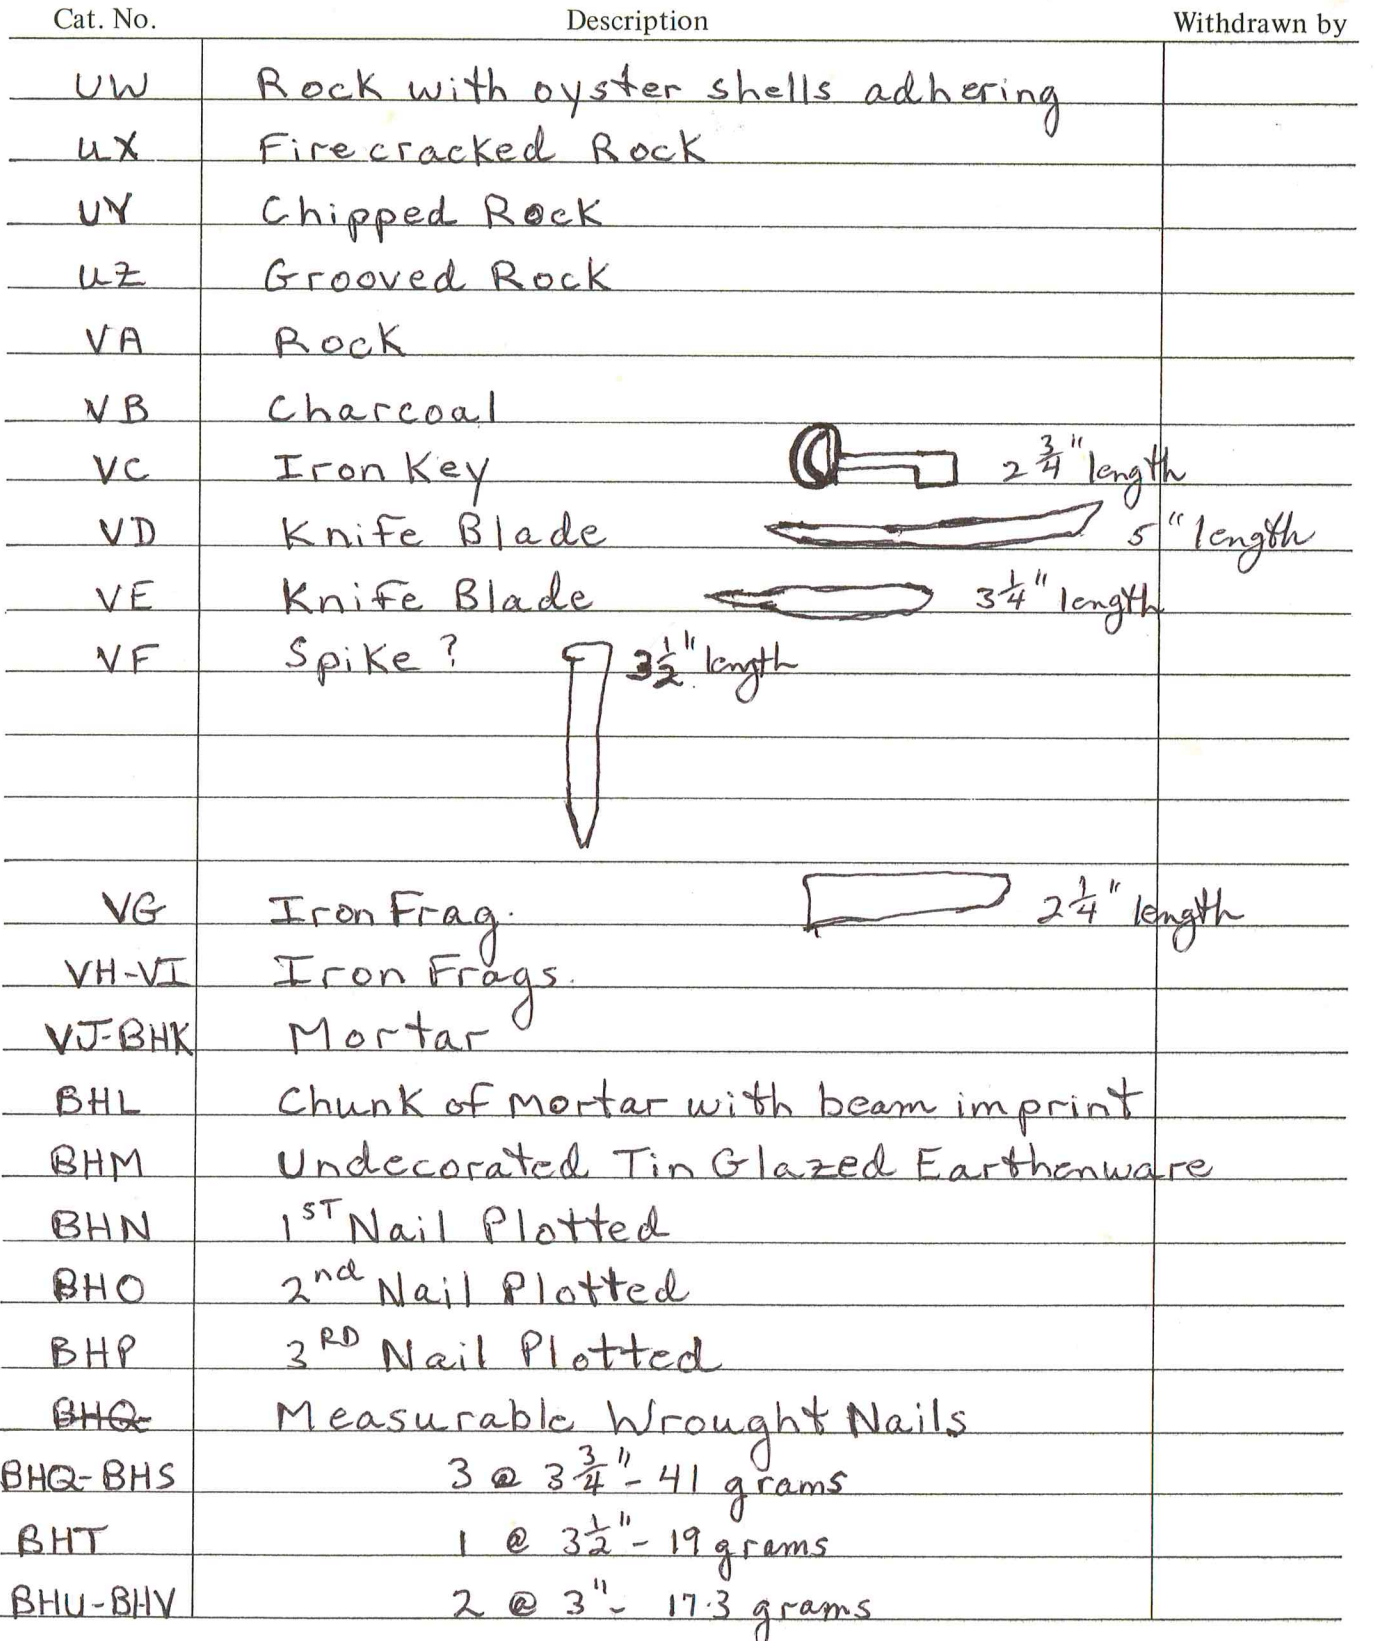 Cat. No. Description Withdrawn by
UW Rock with oyster shells adhering
UX Firecracked Rock
UY Chipped Rock
UZ Grooved Rock
VA Rock
VB Charcoal
VC Iron Key 2 3/4" length
VD Knife Blade 5" length
VE Knife Blade 3 1/4" length
VF Spike? 3 1/2" length
VG Iron Frag. 2 1/4" length
VH-VI Iron Frags.
VJ-BHK Mortar
BHL Chunk of mortar with beam imprint
BHM Undecorated Tin Glazed Earthenware
BHN 1ST Nail Plotted
BHO 2nd Nail Plotted
BHP 3RD Nail Plotted
BHQ- Measurable Wrought Nails
BHQ-BHS 3 @ 3 3/4" - 41 grams
BHT 1 @ 3 1/2" - 19 grams
BHU-BHV 2 @ 3" - 17.3 grams